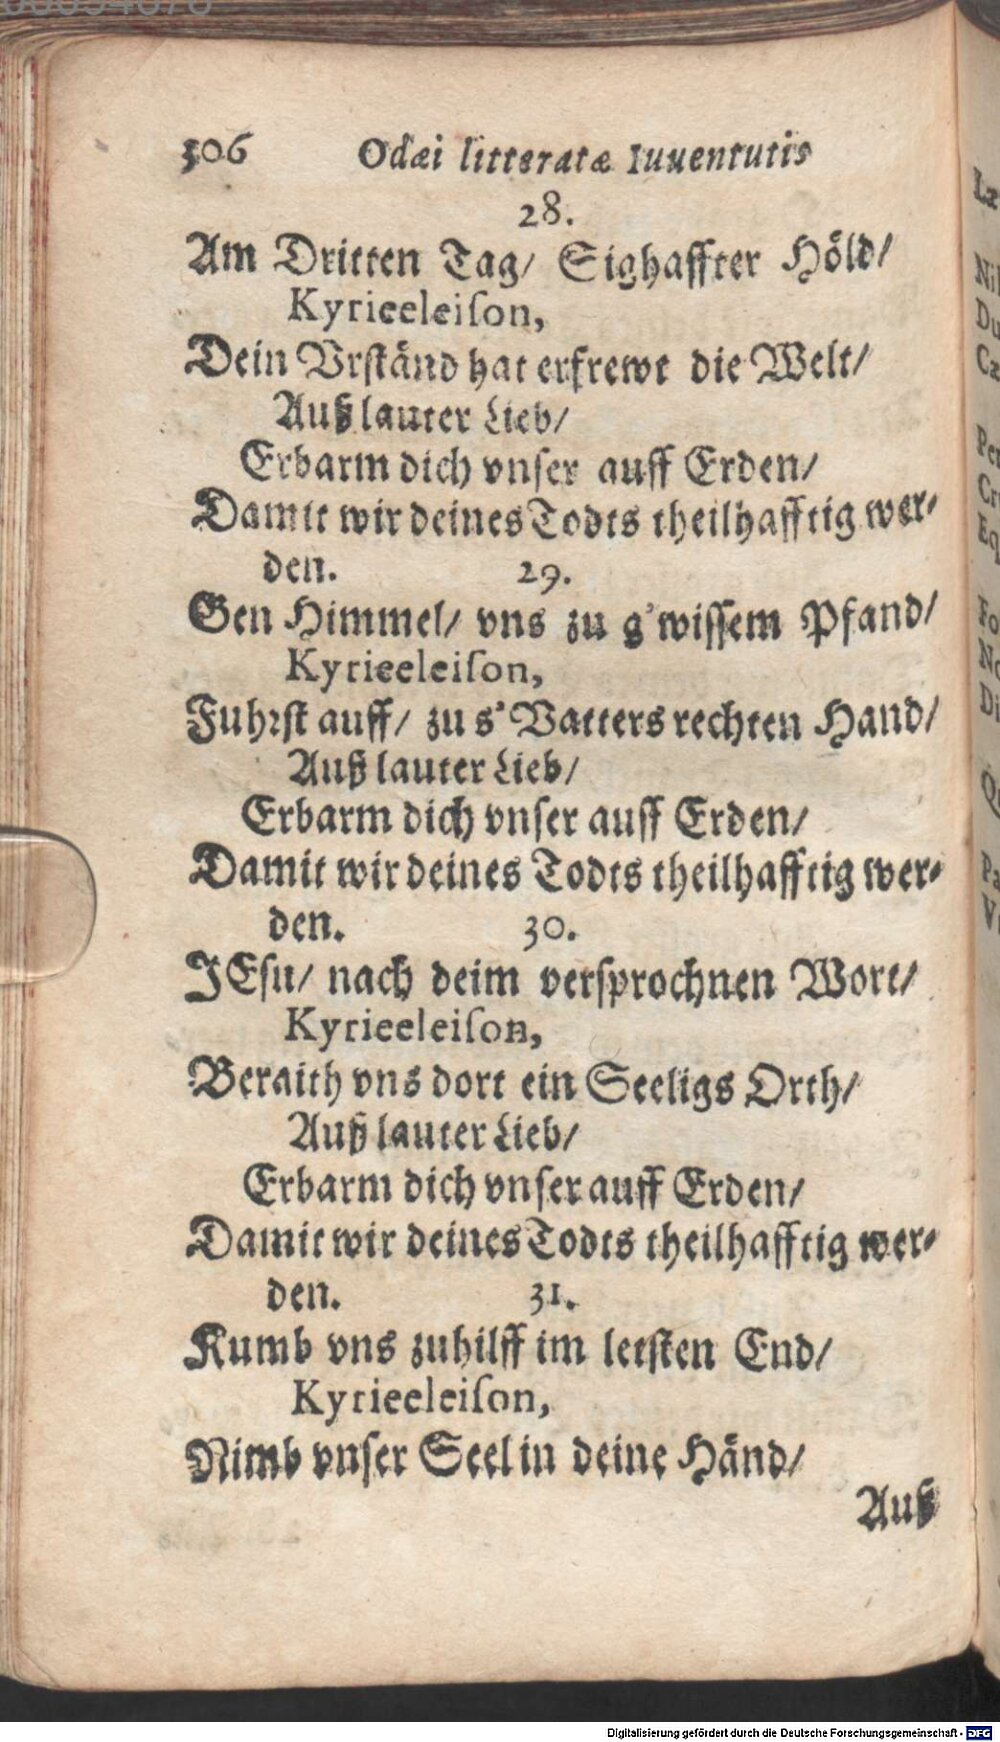 306 Odæi litteratæ Iuuentutis
28.
Am Dritten Tag/ Sighaffter Höld/
Kyrieeleiſon,
Dein Vrſtänd hat erfrewt die Welt/
Auß lauter Lieb/
Erbarm dich vnſer auff Erden/
Damit wir deines Todts theilhafftig wer-
den. 29.
Gen Himmel/ vns zu g'wiſſem Pfand/
Kyrieeleiſon,
Fuhrſt auff/ zu s'Vatters rechten Hand/
Auß lauter Lieb/
Erbarm dich vnſer auff Erden/
Damit wir deines Todts theilhafftig wer-
den. 30.
JEſu/ nach deim verſprochnen Wort/
Kyrieeleiſon,
Beraith vns dort ein Seeligs Orth/
Auß lauter Lieb/
Erbarm dich vnſer auff Erden/
Damit wir deines Todts theilhafftig wer-
den. 31.
Kumb vns zuhilff im letſten End/
Kyrieeleiſon,
Nimb vnſer Seel in deine Händ/
Auß
Digitalisierung gefördert durch die Deutsche Forschungsgemeinschaft - DFG